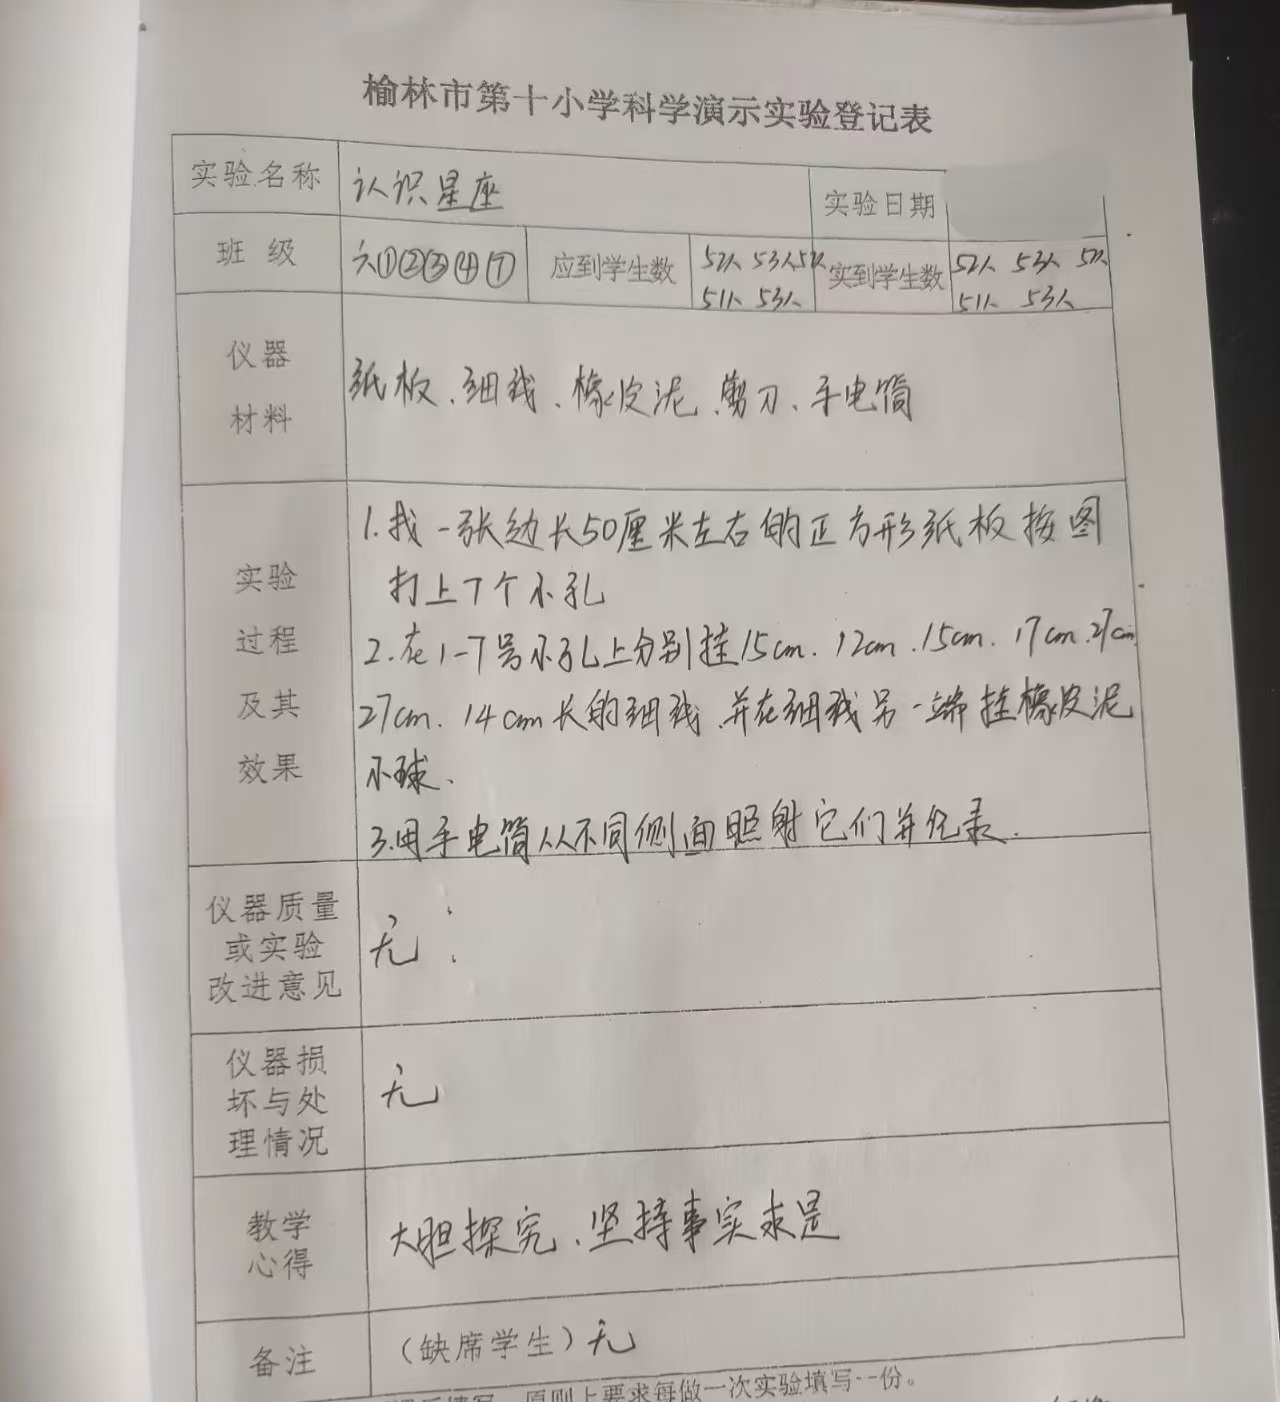 榆林市第十小学科学演示实验登记表
实验名称 认识星座 实验日期
班 级 六①②③④⑦ 应到学生数 52人 53人 52人 实到学生数 52人 53人 52人
51人 53人 51人 53人
仪器
材料
纸板、细线、橡皮泥、剪刀、手电筒
实验
过程
及其
效果
1.找一张边长50厘米左右的正方形纸板按图
打上7个小孔
2.在1-7号小孔上分别挂15cm.12cm.15cm.17cm.27cm
27cm.14cm长的细线,并在细线另一端挂橡皮泥
小球.
3.用手电筒从不同侧面照射它们并纪录.
仪器质量
或实验
改进意见
无
仪器损
坏与处
理情况
无
教学
心得
大胆探究、坚持事实求是
备注 （缺席学生）无
原则上要求每做一次实验填写一份。